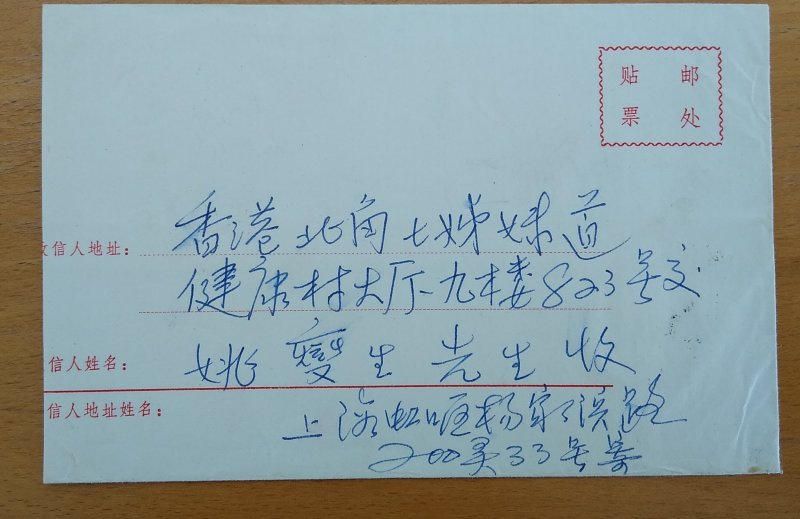 贴 邮
票 处
信人地址：香港北角七姊妹道
健康村大厅九楼823号交
信人姓名：姚燮生先生收
信人地址姓名：上海虹口区杨家浜路
200弄33号寄